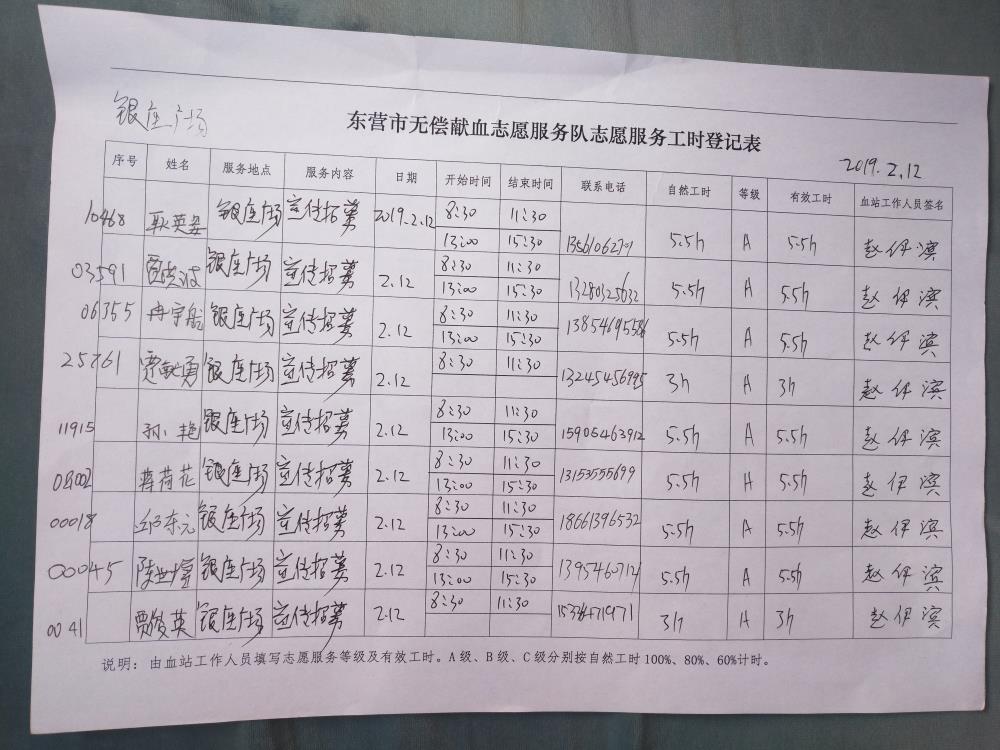 银座广场
东营市无偿献血志愿服务队志愿服务工时登记表
2019.2.12
序号 姓名 服务地点 服务内容 日期 开始时间 结束时间 联系电话 自然工时 等级 有效工时 血站工作人员签名
10468 耿英姿 银座广场 宣传招募 2019.2.12 8:30 11:30 5.5h A 5.5h 赵伊滨
13:00 15:30
03591 银座广场 宣传招募 2.12 8:30 11:30 13280325632 5.5h A 5.5h 赵伊滨
13:00 15:30
06355 冉宇航 银座广场 宣传招募 2.12 8:30 11:30 5.5h A 5.5h 赵伊滨
13:00 15:30
25761 贾敏勇 银座广场 宣传招募 2.12 8:30 11:30 13245456995 3h A 3h 赵伊滨
11915 孙艳 银座广场 宣传招募 2.12 8:30 11:30 15906463912 5.5h A 5.5h 赵伊滨
13:00 15:30
蒋荷花 银座广场 宣传招募 2.12 8:30 11:30 13153555699 5.5h A 5.5h 赵伊滨
13:00 15:30
00018 邱东元 银座广场 宣传招募 2.12 8:30 11:30 18661396532 5.5h A 5.5h 赵伊滨
13:00 15:30
00045 银座广场 宣传招募 2.12 8:30 11:30 5.5h A 5.5h 赵伊滨
13:00 15:30
0041 贾俊英 银座广场 宣传招募 2.12 8:30 11:30 3h A 3h 赵伊滨
说明：由血站工作人员填写志愿服务等级及有效工时。A级、B级、C级分别按自然工时100%、80%、60%计时。